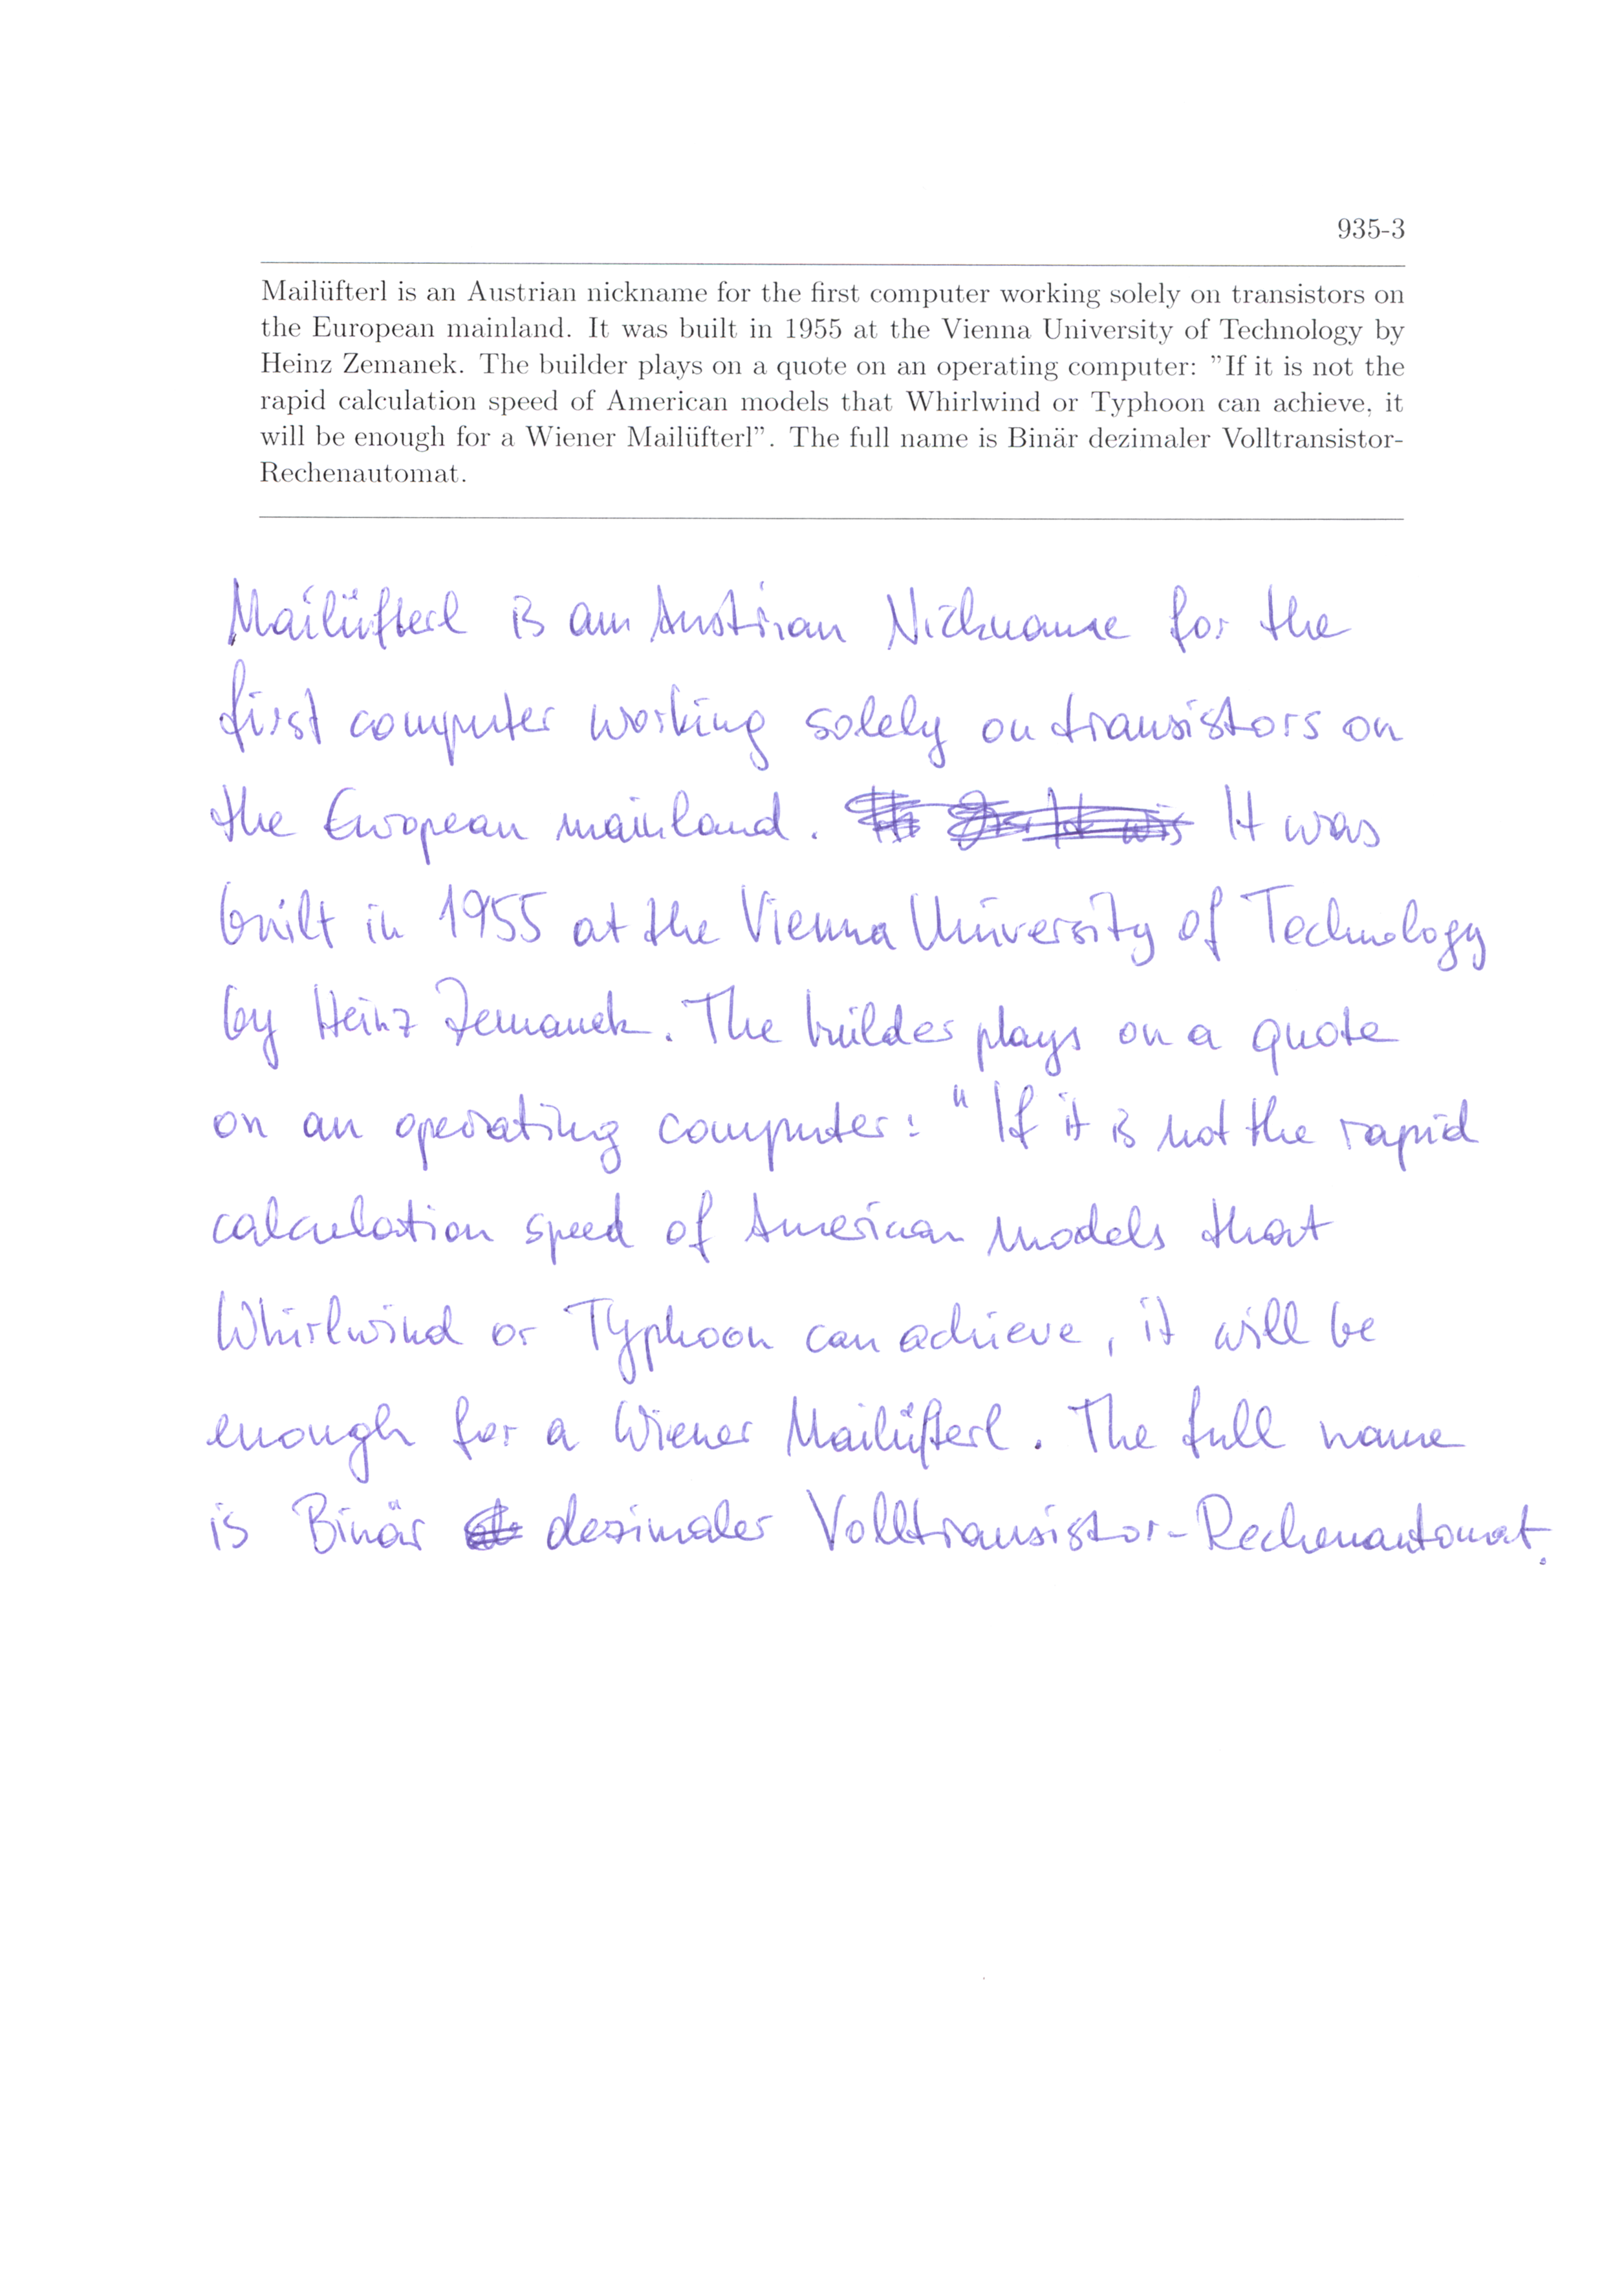 935-3
Mailüfterl is an Austrian nickname for the first computer working solely on transistors on
the European mainland. It was built in 1955 at the Vienna University of Technology by
Heinz Zemanek. The builder plays on a quote on an operating computer: ”If it is not the
rapid calculation speed of American models that Whirlwind or Typhoon can achieve, it
will be enough for a Wiener Mailüfterl”. The full name is Binär dezimaler Volltransistor-
Rechenautomat.
Mailüfterl is an Austrian Nickname for the
first computer working solely on transistors on
the European mainland. It was
built in 1955 at the Vienna University of Technology
by Heinz Zemanek. The builder plays on a quote
on an operating computer: "If it is not the rapid
calculation speed of American models that
Whirlwind or Typhoon can achieve, it will be
enough for a Wiener Mailüfterl. The full name
is Binär dezimaler Volltransistor-Rechenautomat.